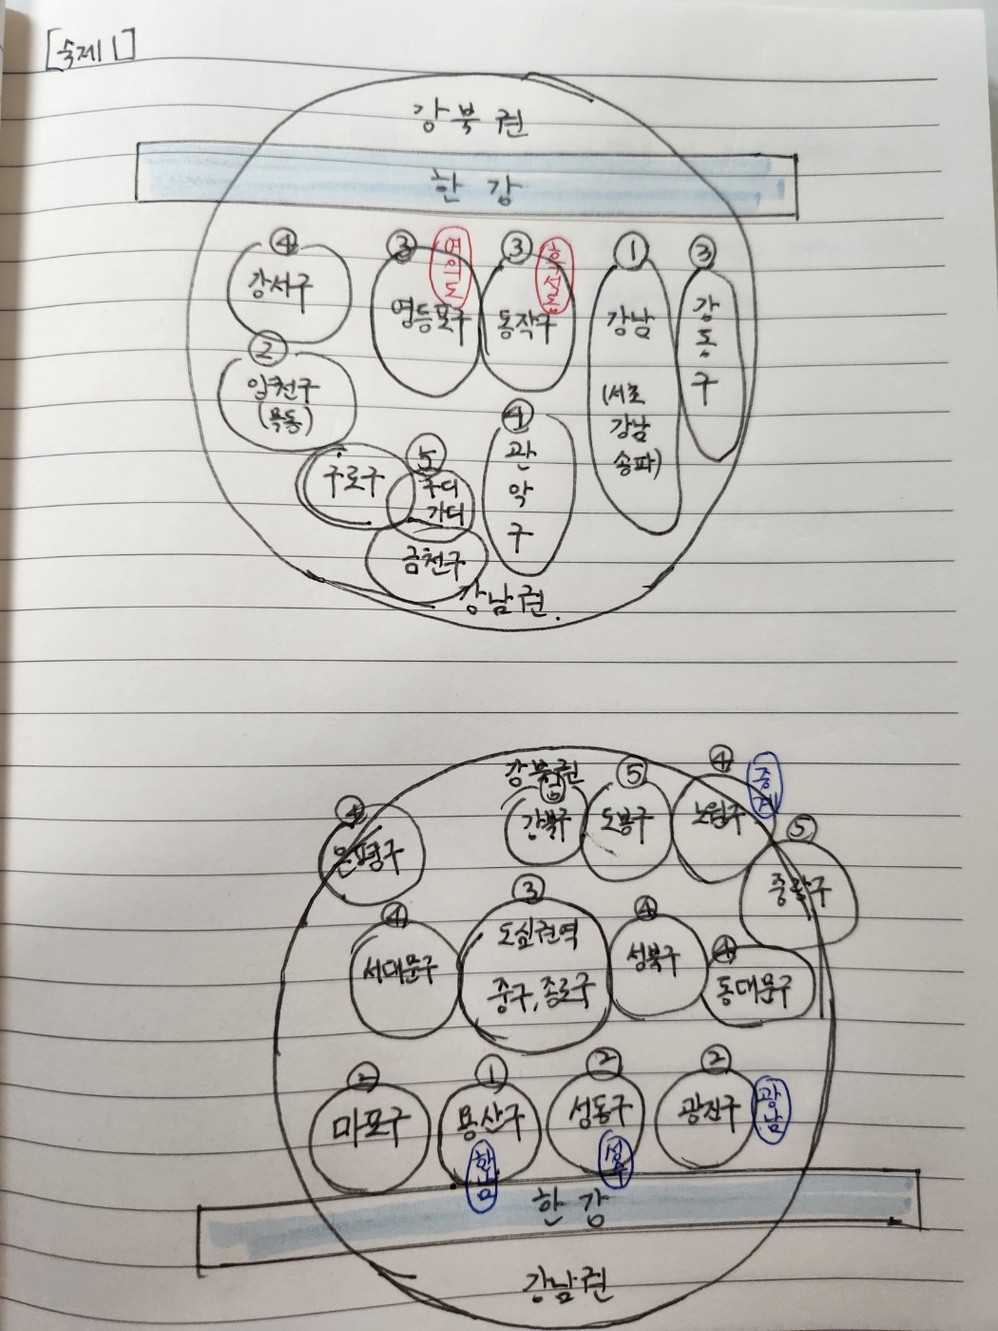 [숙제1]
강북권
한강
④
강서구
②
양천구
(목동)
③
여의도
영등포구
③
흑석동
동작구
①
강남
(서초
강남
송파)
③
강
동
구
구로구
⑤
구디
가디
금천구
④
관
악
구
강남권.
강북권
강북구
⑤
도봉구
④
중계
노원구
⑤
중랑구
④
은평구
④
서대문구
③
도심권역
중구, 종로구
④
성북구
④
동대문구
②
마포구
①
용산구
한남
②
성동구
성수
②
광진구
광남
한강
강남권